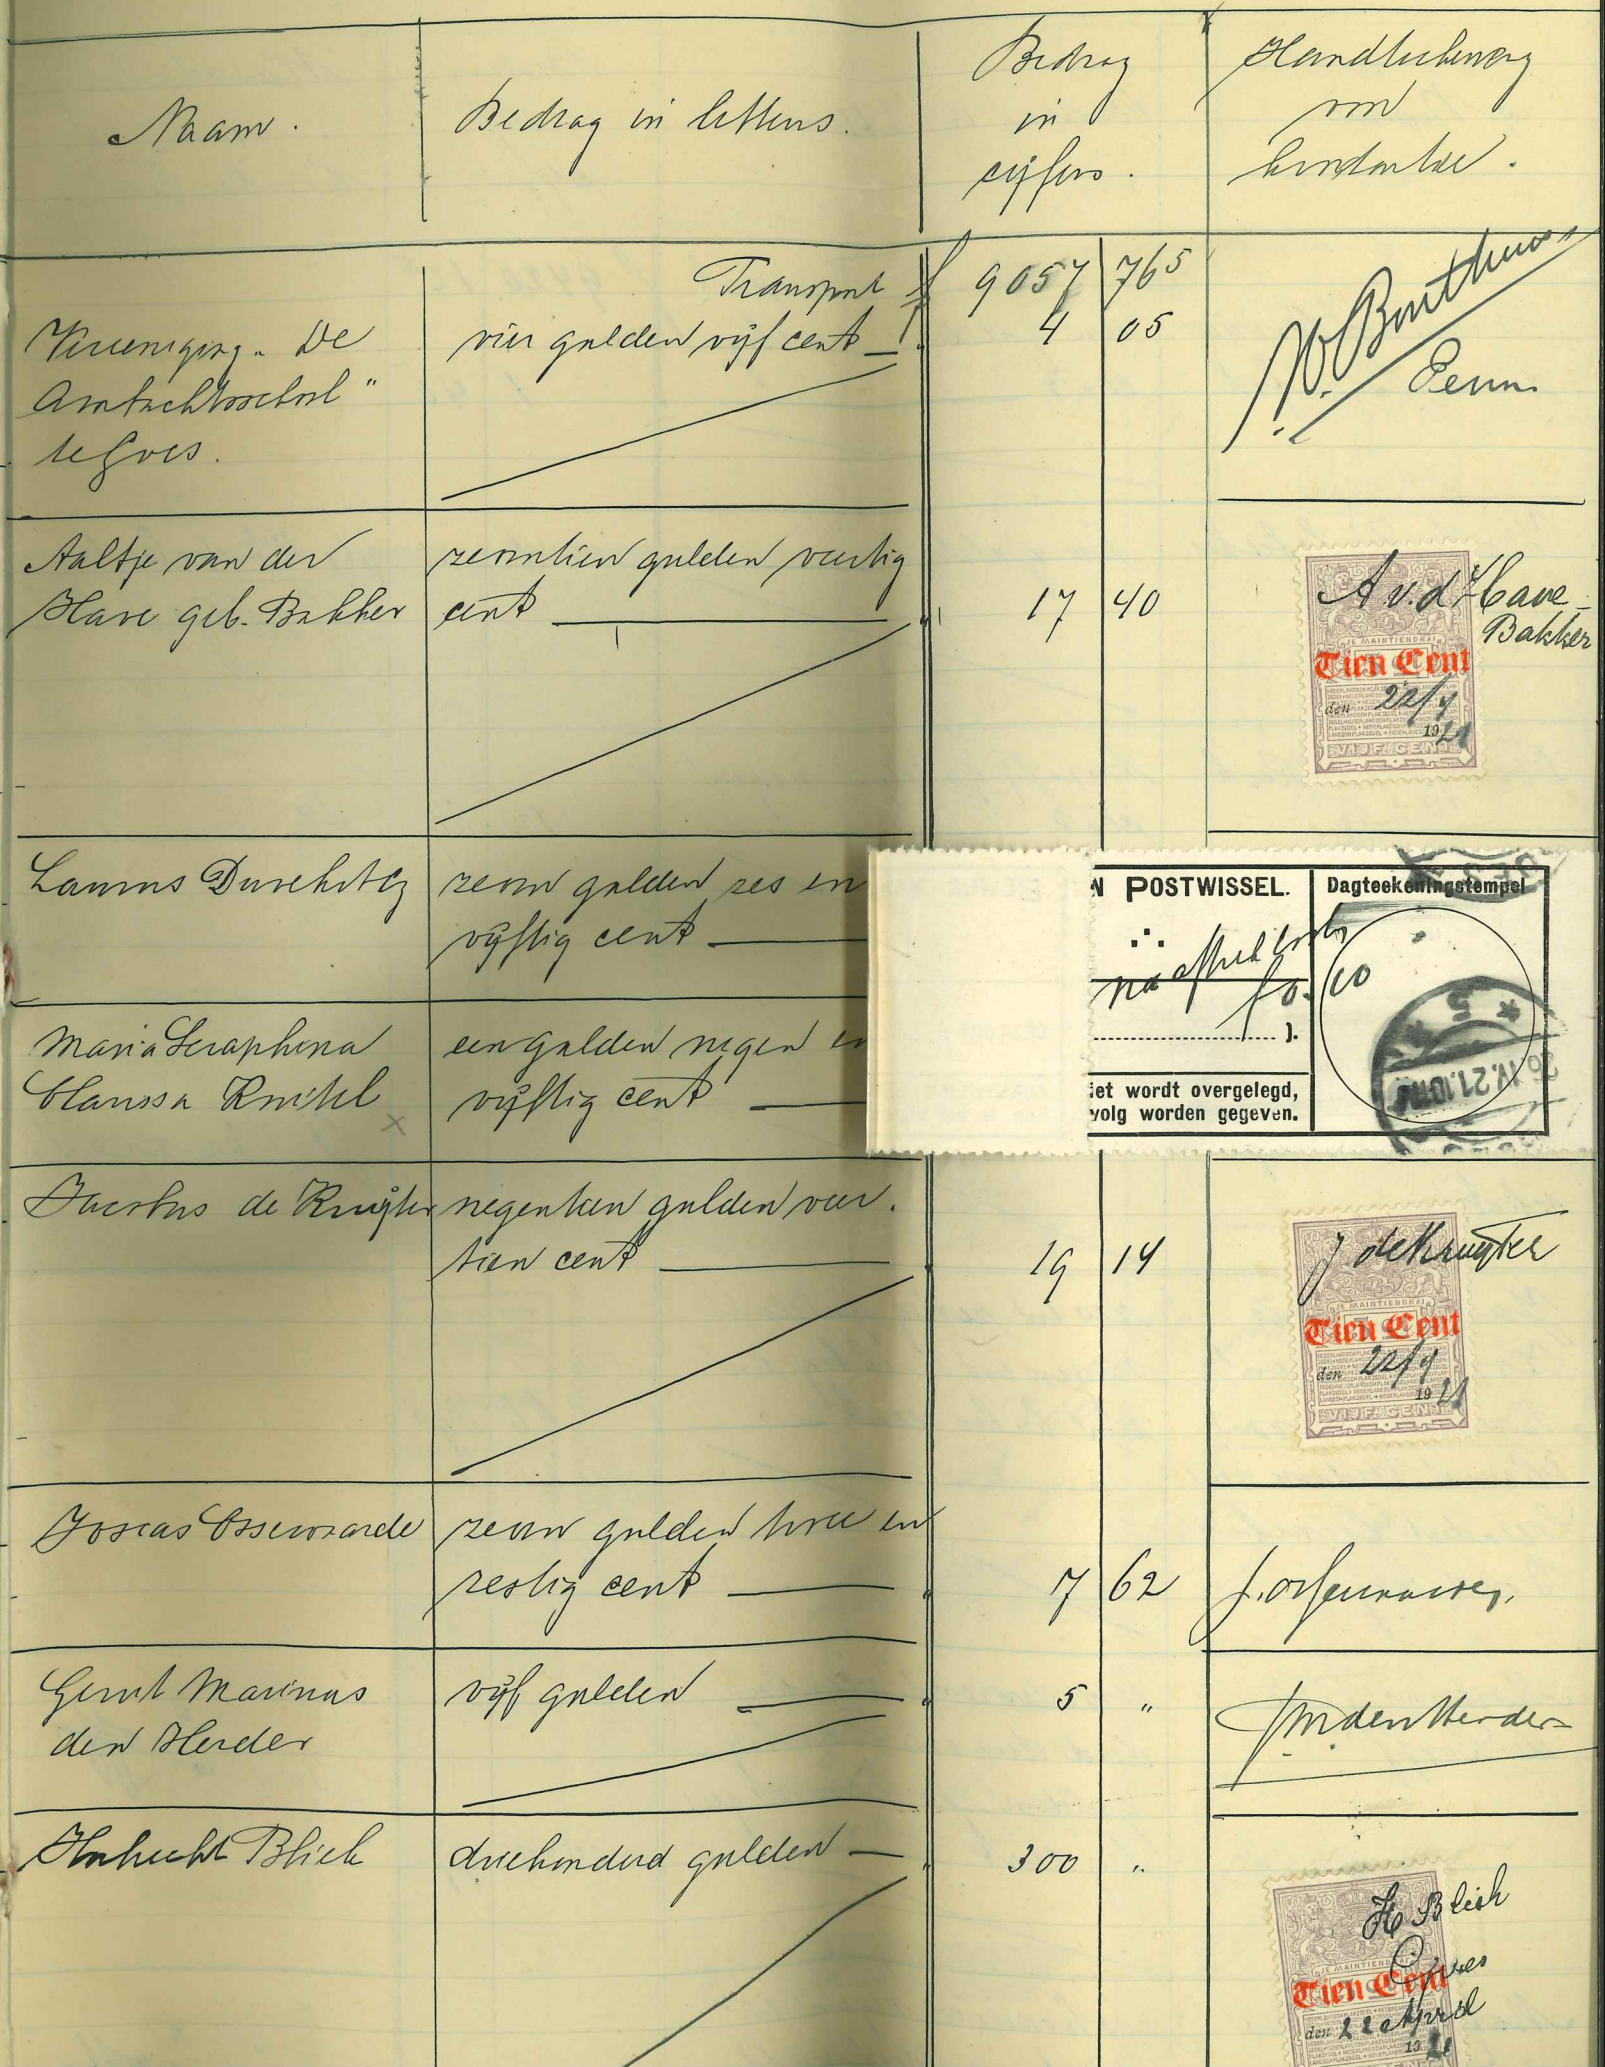 Naam.
Bedrag in letters.
Bedrag
in
cijfers.
Handteekening
von
Transport f 9057 765
Vereeniging "De
Ambachtsschool"
te Goes.
vier gulden vijf cent
4 05
Penn.
Aaltje van der
Have geb. Bakker
zeventien gulden veertig
cent
17 40
A v. d Have-
Bakker
JE MAINTIENDRAI
Tien Cent
den 22/4
1921
VIJF CENT
Laurus
zeven gulden zes en
vijftig cent
N POSTWISSEL.
Dagteekeningstempel
na
f 0.10
).
iet wordt overgelegd,
volg worden gegeven.
26.IV.21.10
Maria Seraphina
Clarissa
een gulden negen en
vijftig cent
Jacobus de Kruijter
negentien gulden veer-
tien cent
19 14
J de Kruijter
JE MAINTIENDRAI
Tien Cent
den 22/4
1921
VIJF CENT
Josias Ossewaarde
zeven gulden twee en
zestig cent
7 62
J. Ossewaarde
Gerrit Marinus
den Herder
vijf gulden
5 "
GM den Herder
Huibrecht Blick
driehonderd gulden
300 "
H Blick
Goes
JE MAINTIENDRAI
Tien Cent
den 22 April
1921